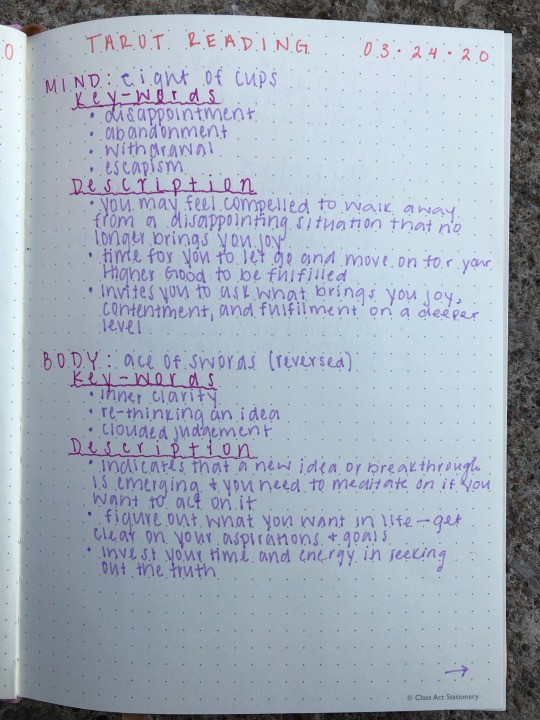 0
TAROT READING 03·24·20
MIND: eight of cups
Key-words
• disappointment
• abandonment
• withdrawal
• escapism
Description
• you may feel compelled to walk away
from a disappointing situation that no
longer brings you joy
• time for you to let go and move on for your
Higher Good to be fulfilled
• invites you to ask what brings you joy,
contentment, and fulfilment on a deeper
level
BODY: ace of swords (reversed)
Key-words
• inner clarity
• re-thinking an idea
• clouded judgement
Description
• indicates that a new idea or breakthrough
is emerging + you need to meditate on it if you
want to act on it
• figure out what you want in life — get
clear on your aspirations + goals
• invest your time and energy in seeking
out the truth
→
© Class Act Stationery